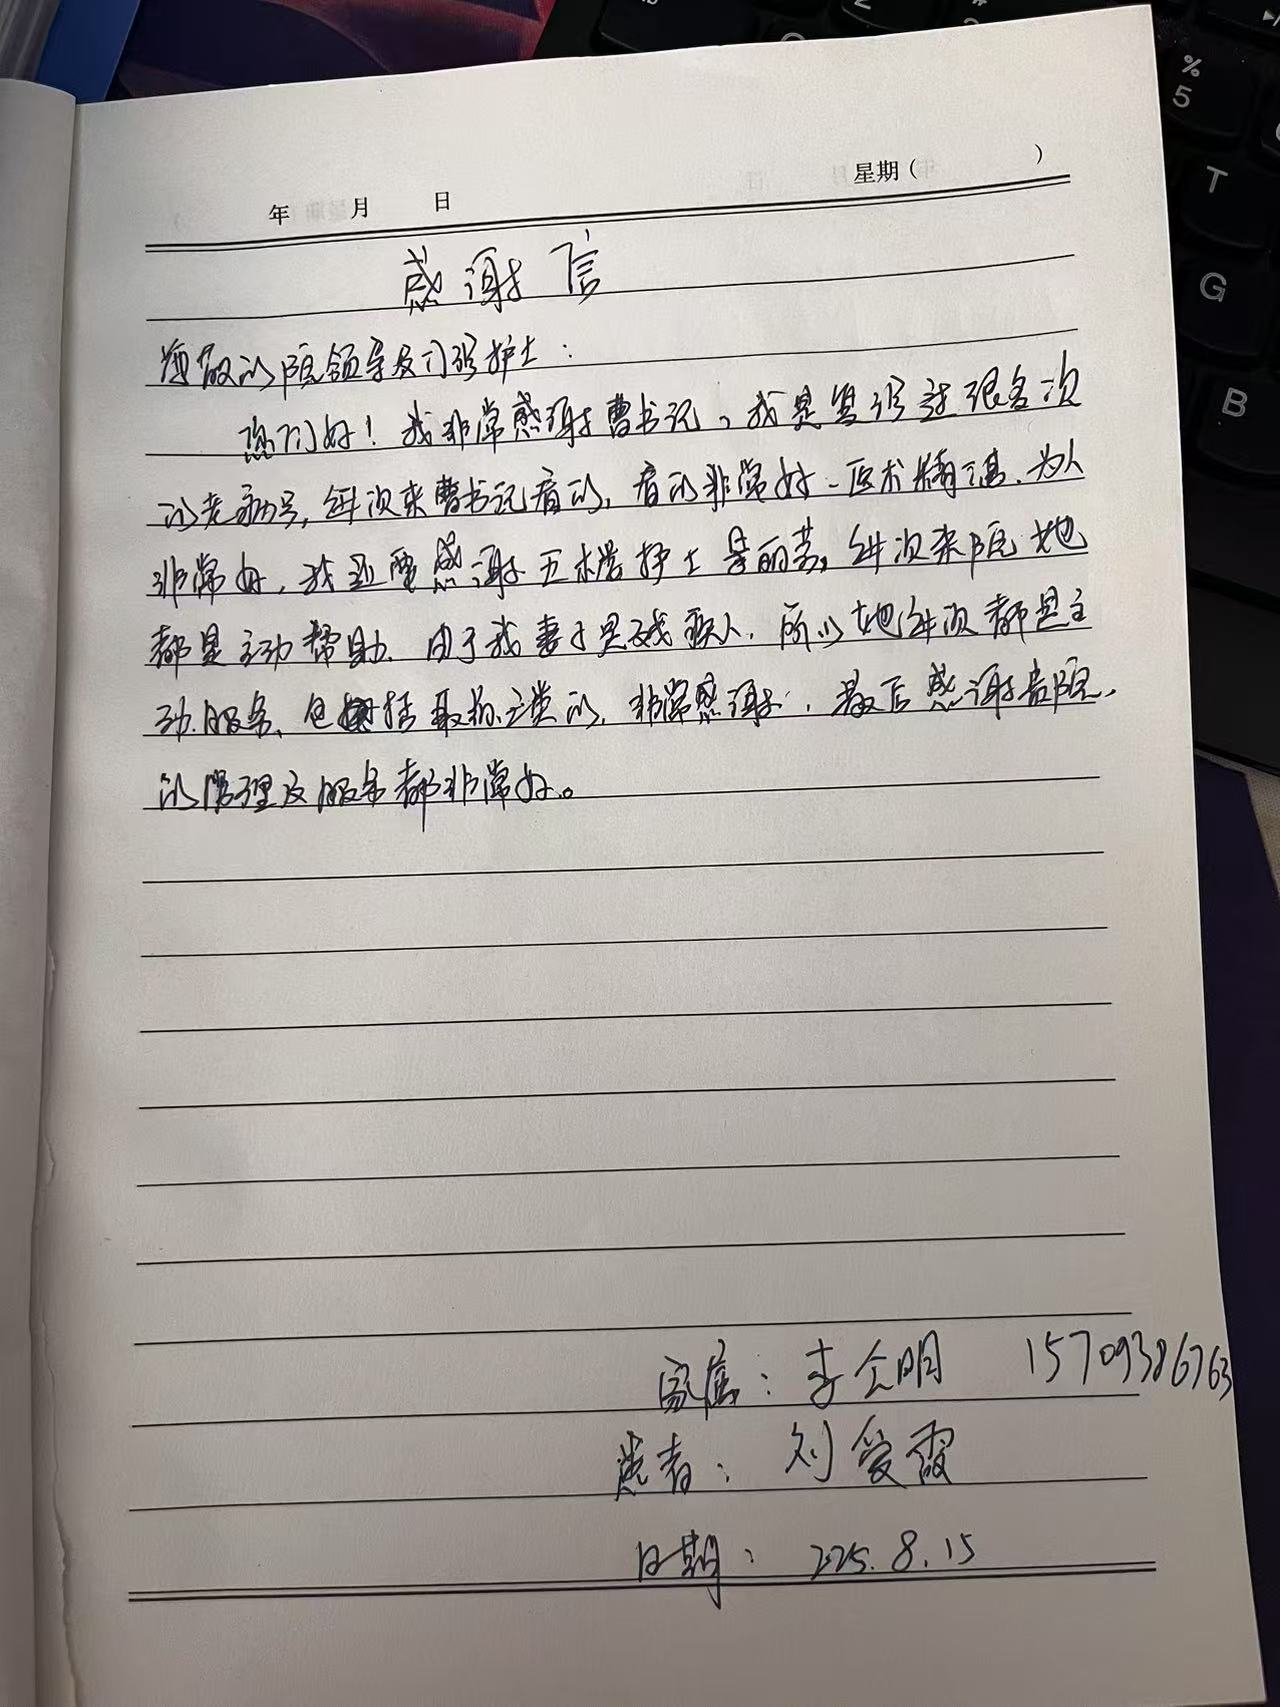 年 月 日 星期( )
感谢信
尊敬的院领导及门诊护士:
您们好!我非常感谢曹书记,我是复诊过很多次
的老病号,每次来曹书记看的,看的非常好,医术精湛、为人
非常好,我还要感谢五楼护士 丽芸,每次来院她
都是主动帮助、由于我妻子是残疾人,所以她每次都是主
动服务、包括取 类的,非常感谢,最后感谢贵院,
的管理及服务都非常好。
家属:李全明 15709386763
患者:刘爱霞
日期:2025.8.15
% 5
T
G
B